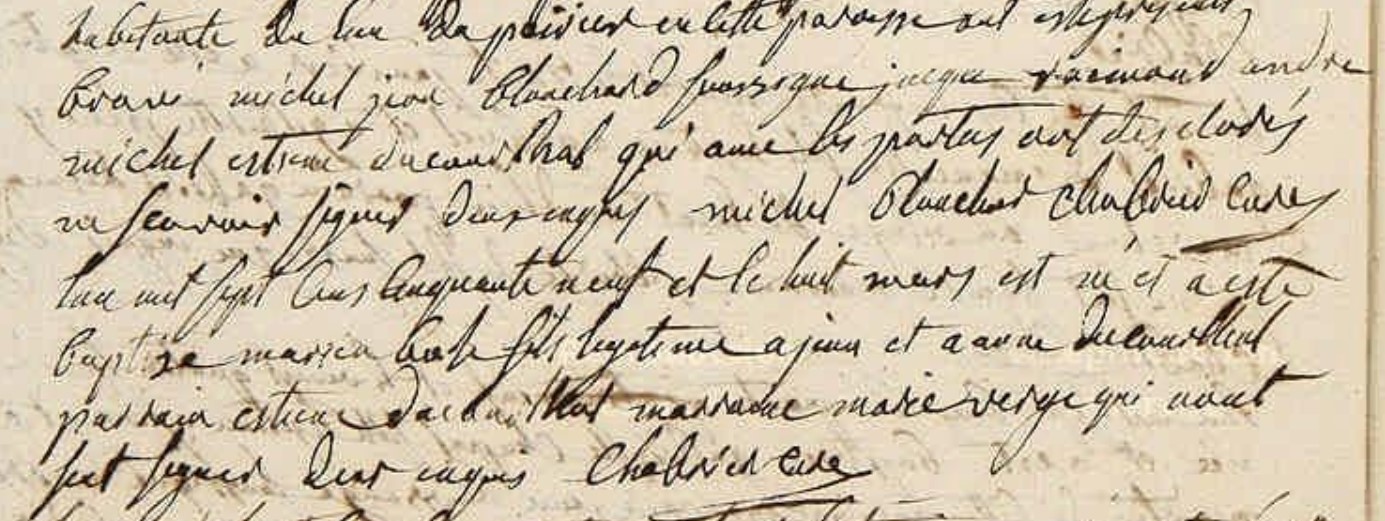 habitante du lieu du poirier en cette paroisse ont esté presents
michel jean blanchard jacque andre
michel estiene ducouilhal qui avec les parties ont desclarés
ne scavoir signer deux enquis michel blanchar Chabrier Cure
lan mil sept cens cinquante neuf et le huit mars est né et a esté
baptize fils legitime a jean et a anne ducouilhal
parrain estiene ducouilhal marraine marie verge qui nont
sut signer deux enquis Chabrier Cure